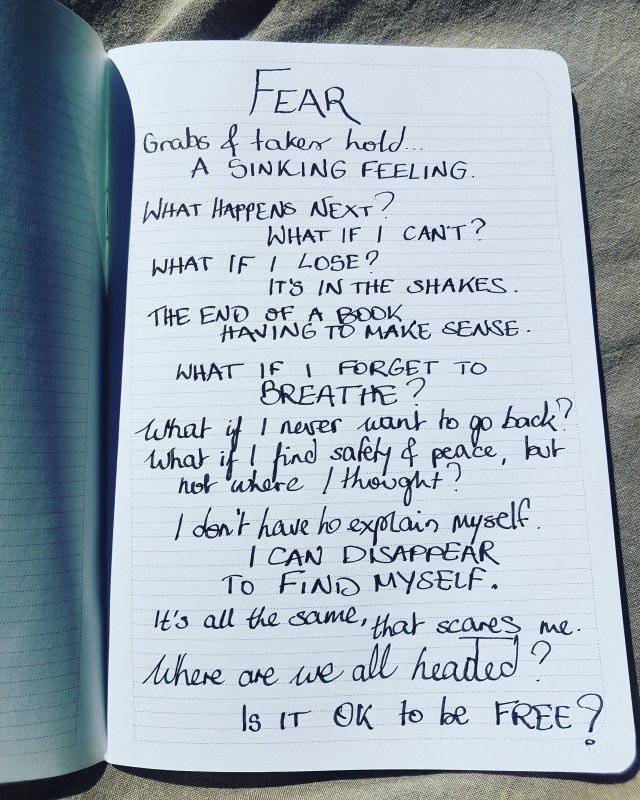 FEAR
Grabs & takes hold...
A SINKING FEELING.
WHAT HAPPENS NEXT?
WHAT IF I CAN'T?
WHAT IF I LOSE?
IT'S IN THE SHAKES.
THE END OF A BOOK,
HAVING TO MAKE SENSE.
WHAT IF I FORGET TO
BREATHE?
What if I never want to go back?
What if I find safety & peace, but
not where I thought?
I don't have to explain myself.
I CAN DISAPPEAR
TO FIND MYSELF.
It's all the same, that scares me.
Where are we all headed?
IS IT OK to be FREE?